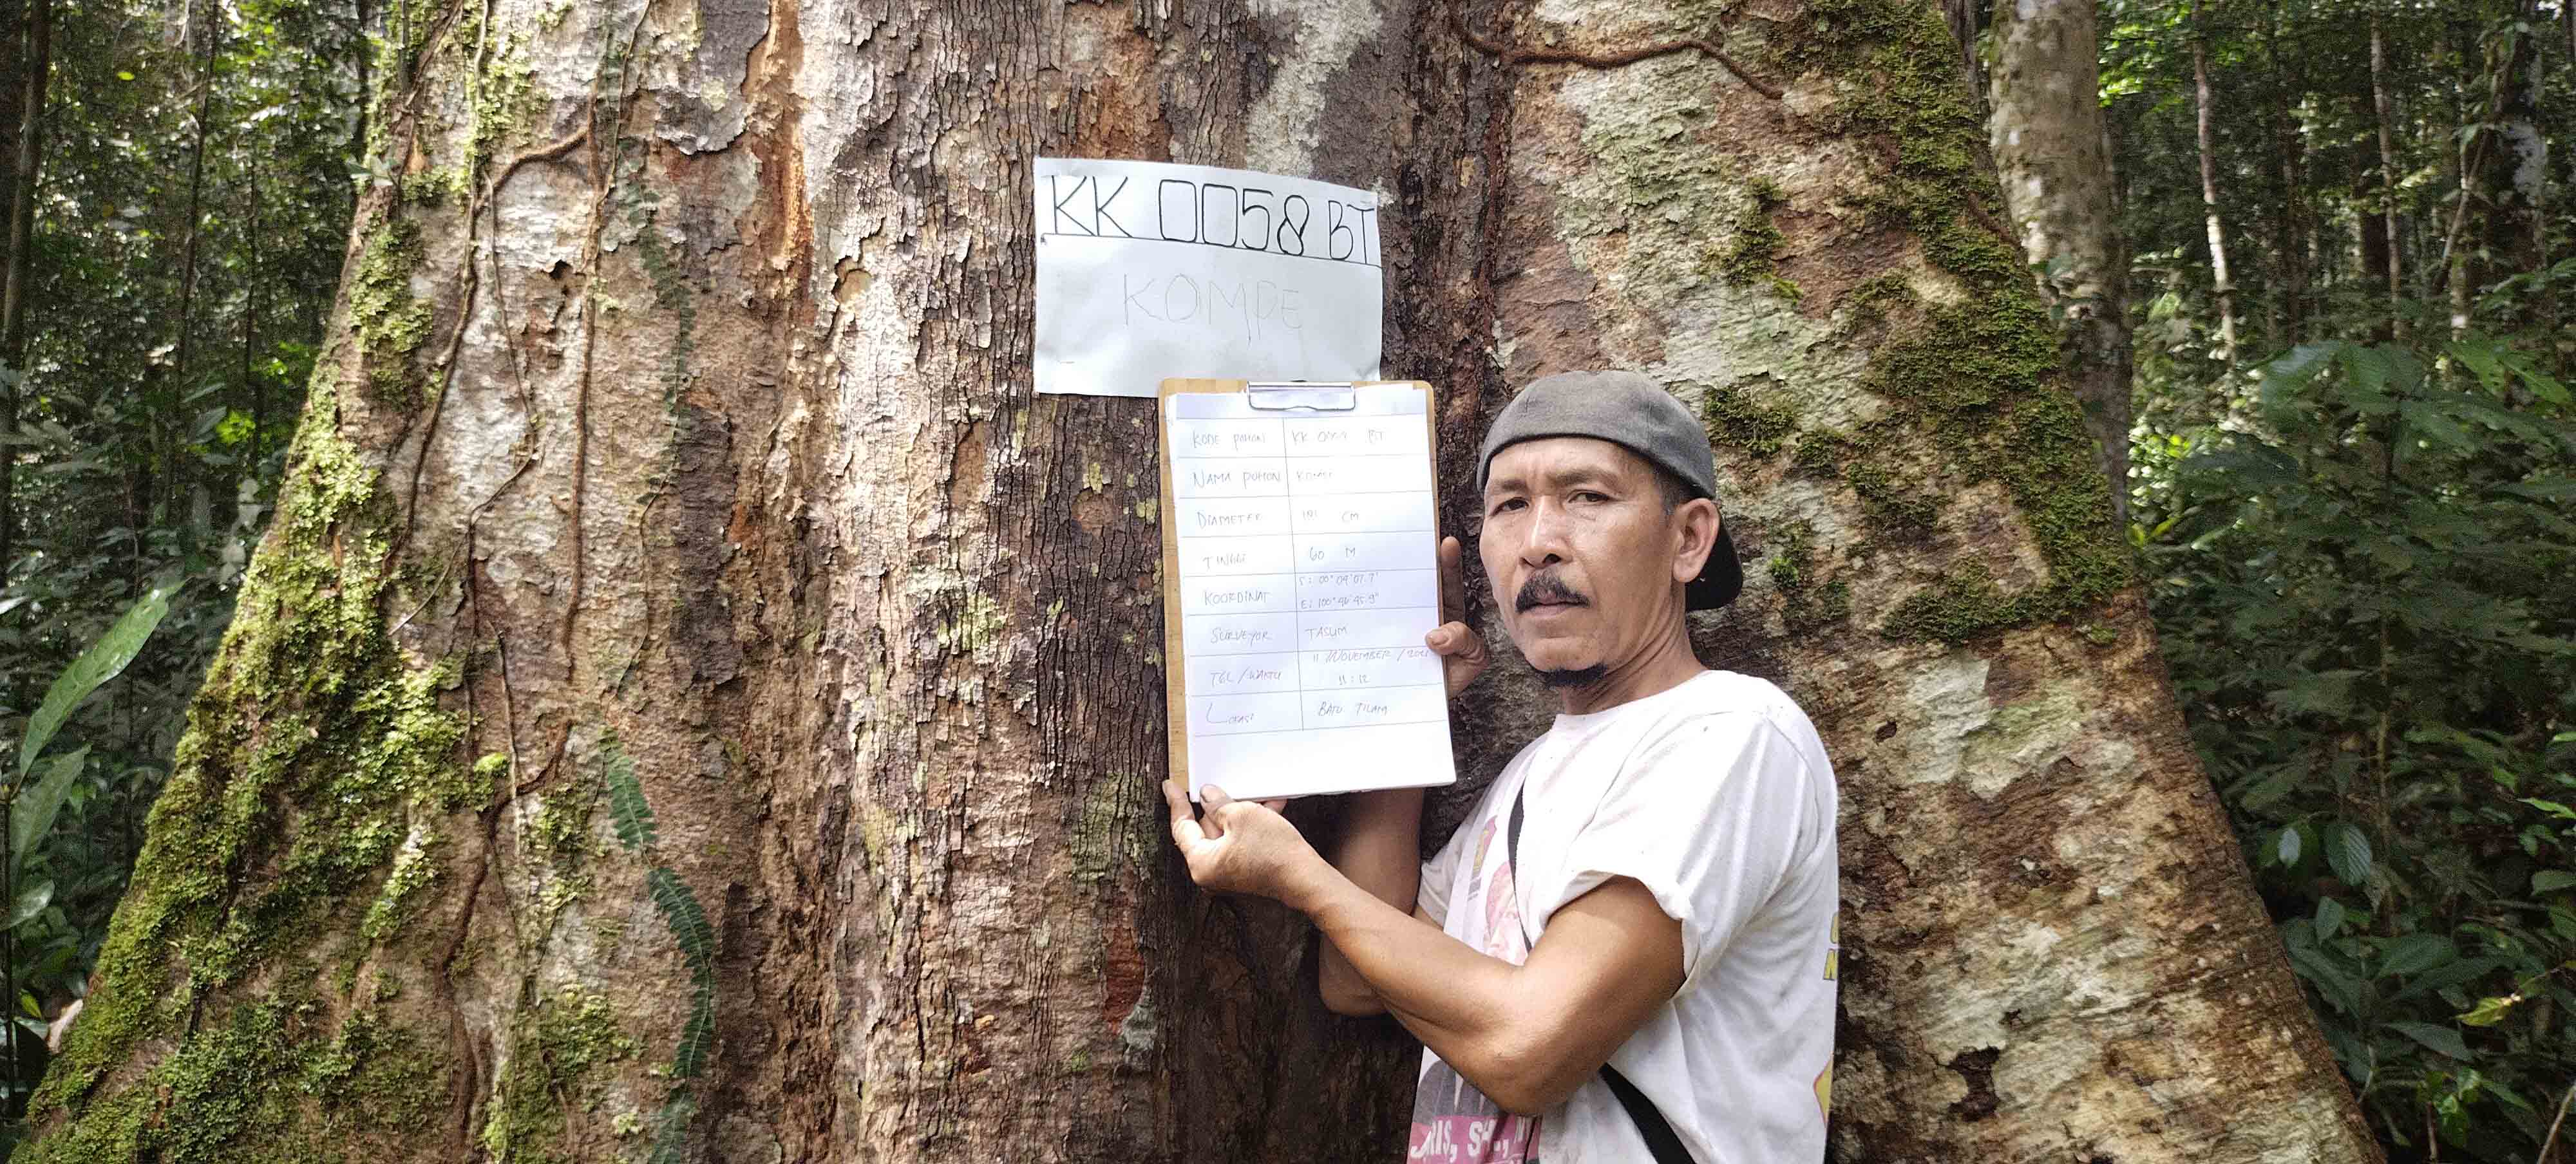 KK 0058 BT
KOMPE
KODE POHON KK BT
NAMA POHON KOMPE
DIAMETER CM
TINGGI 60 M
KOORDINAT S: 00° 09' 07.7"
E: 100° 46' 45.9"
SURVEYOR TASLIM
TGL/WAKTU 11 / NOVEMBER /
11:12
LOKASI BATU TILAM